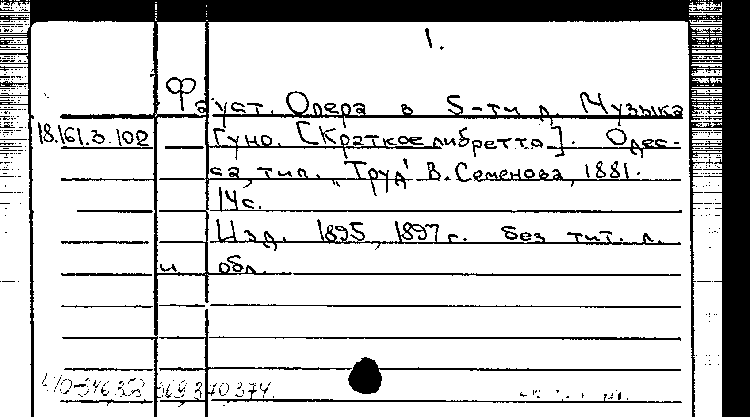 1.
Фауст. Опера в 5-ти д. Музыка
18.161.3.102 Гуно. [Краткое либретто]. Одес-
са, тип. „Труд" В. Семенова, 1881.
14с.
Изд. 1895, 1897 г. без тит. л.
и обл.